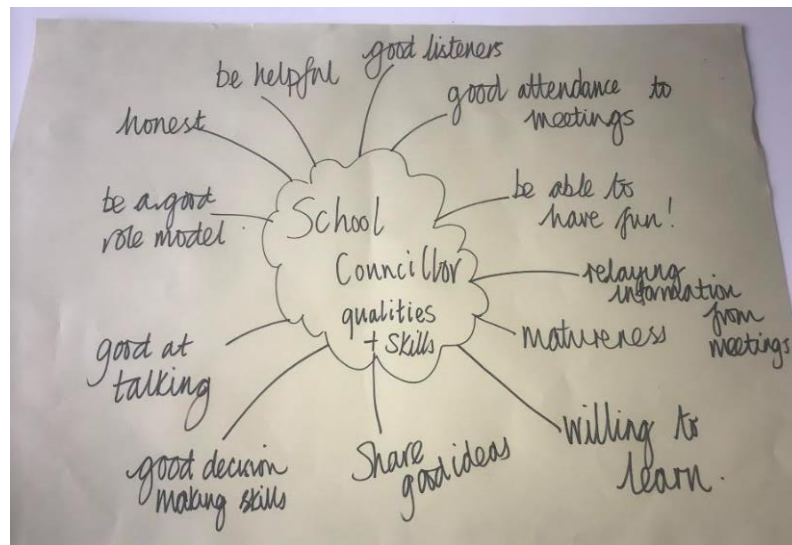 School
Councillor
qualities
+ Skills
good listeners
good attendance to
meetings
be able to
have fun!
relaying
information
from
meetings
matureness
willing to
learn.
Share
good ideas
good decision
making skills
good at
talking
be a good
role model.
honest
be helpful